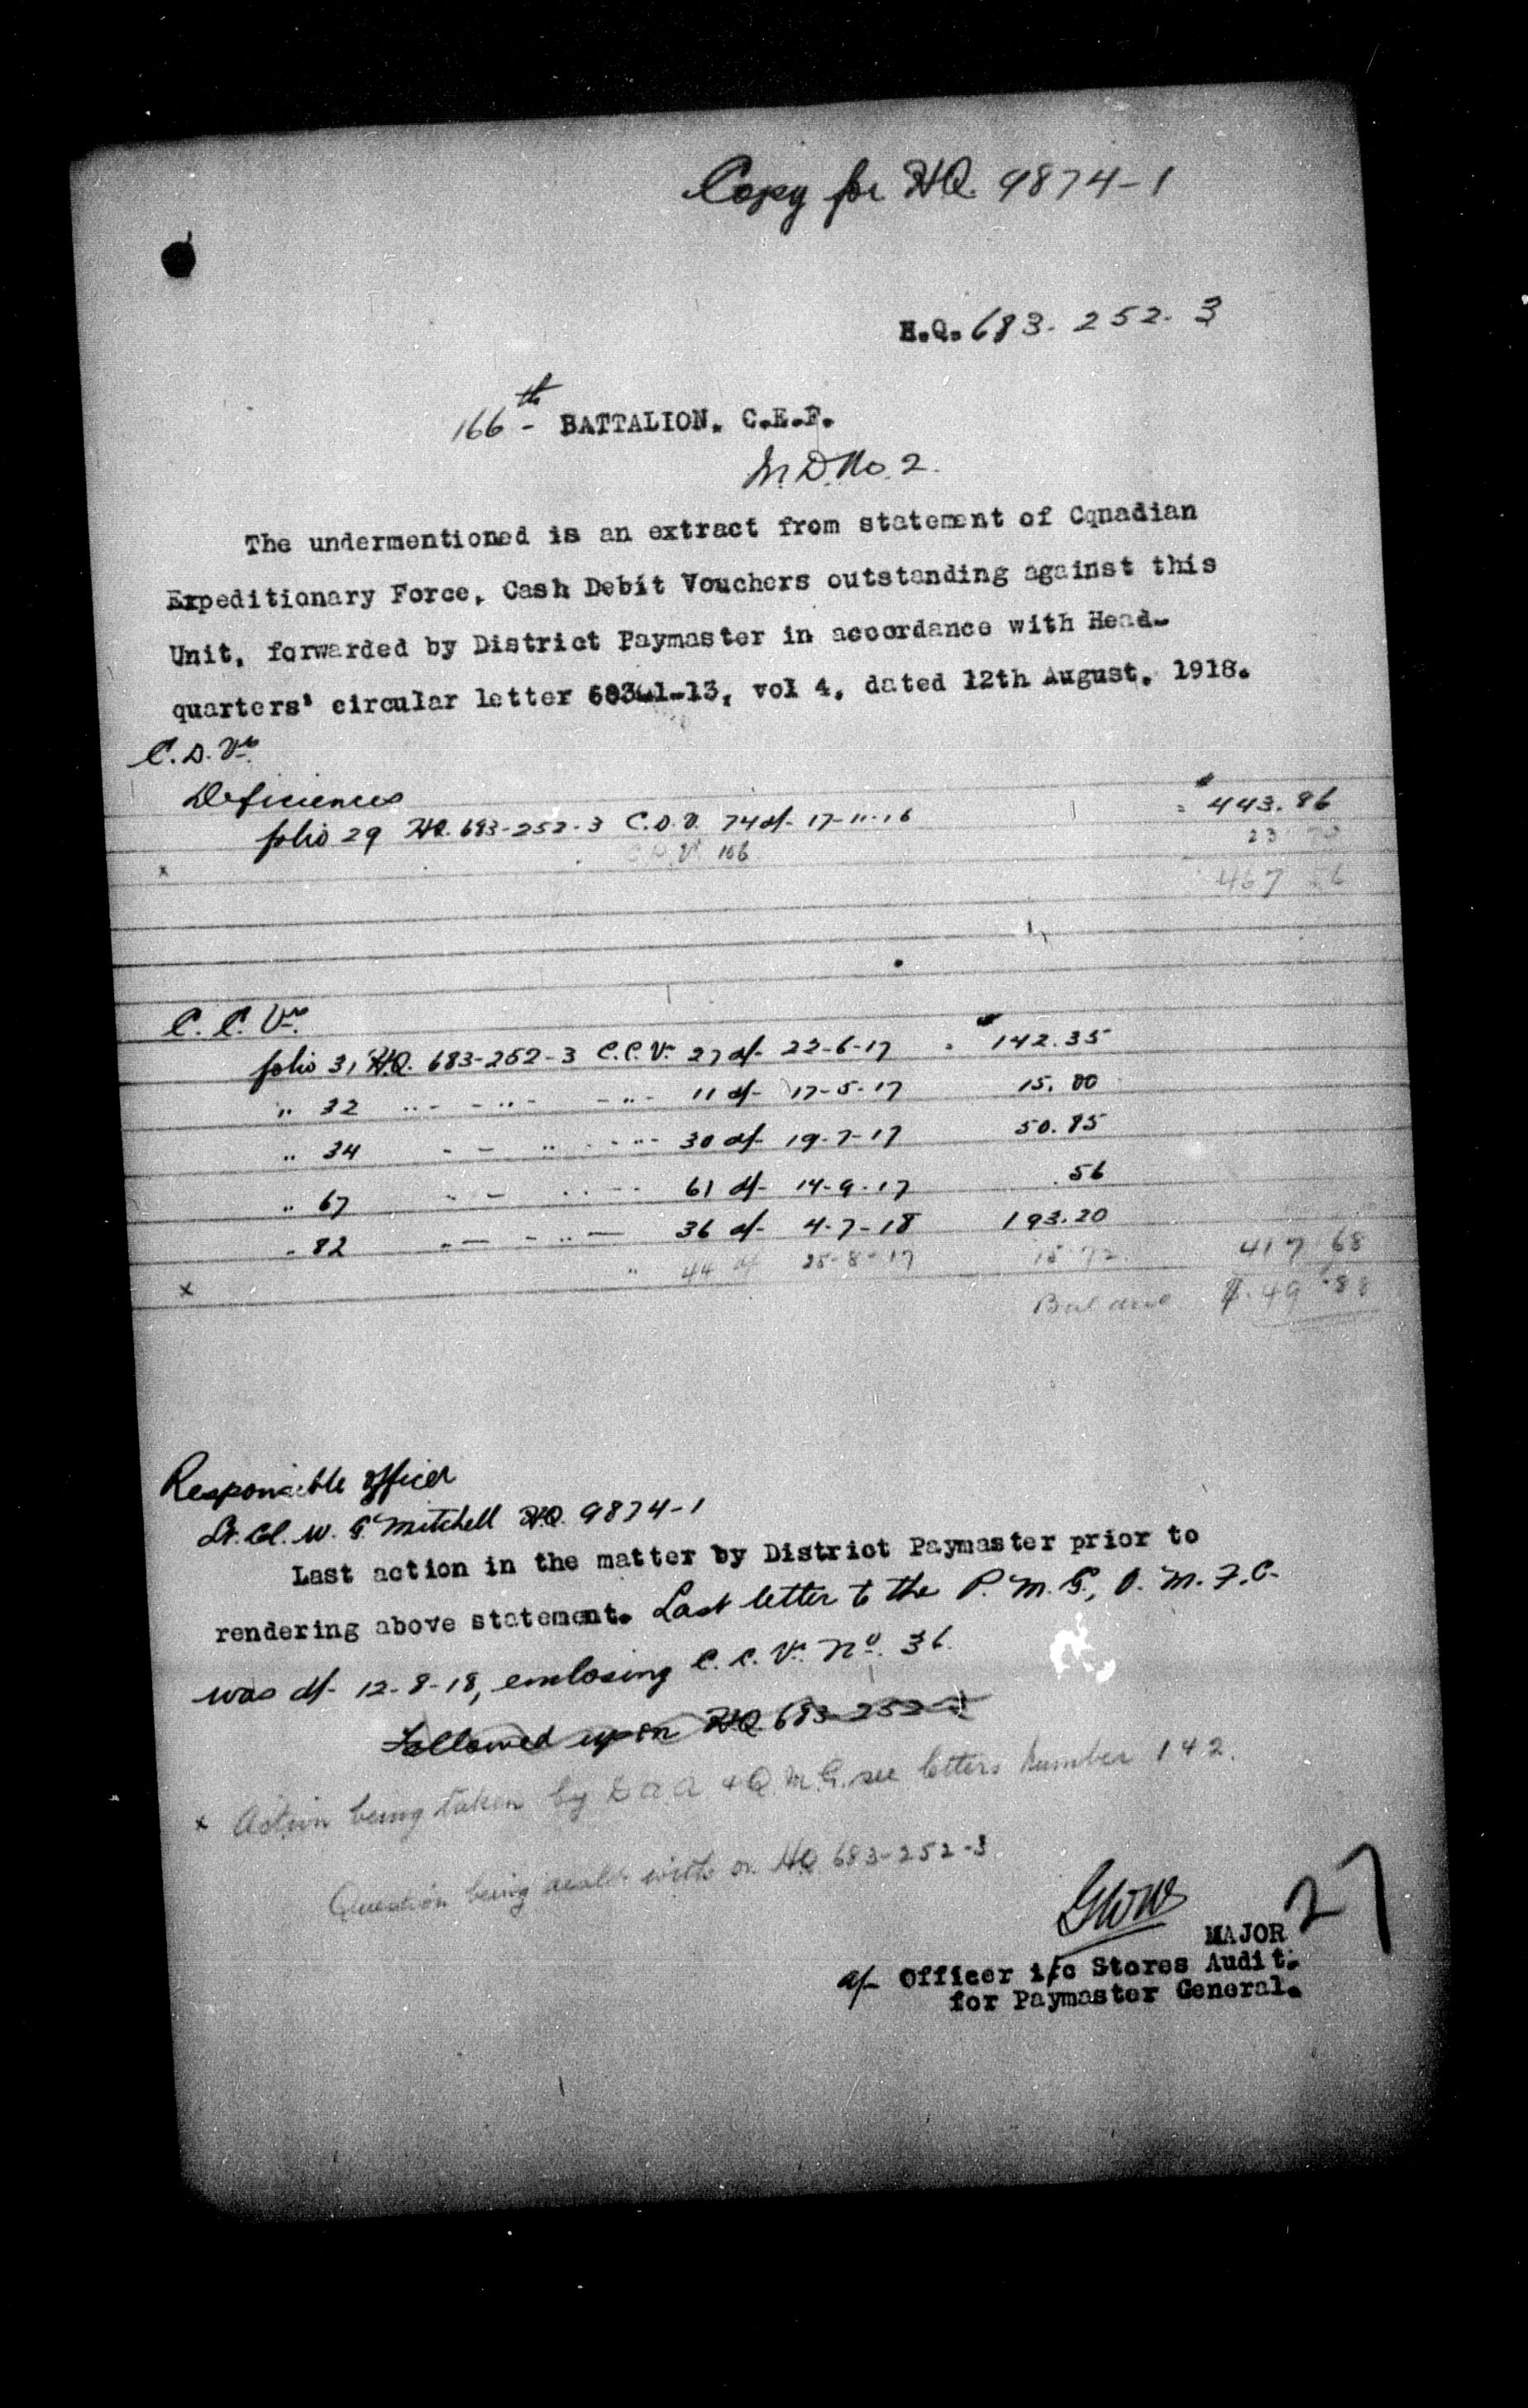 Copy for HQ. 9874-1
H.Q. 683-252-3
166th - BATTALION. C.E.F.
M.D. No. 2.
The undermentioned is an extract from statement of Cqnadian
Expeditionary Force, Cash Debit Vouchers outstanding against this
Unit, forwarded by District Paymaster in accordance with Head-
quarters' circular letter 683-1-13, vol 4, dated 12th August, 1918.
C.D.Vs.
Deficiences
folio 29 HQ. 683-252-3 C.D.V. 74 d/- 17-11-16 = 443.86
x C.D.V. 106 23
467
C.C.Vrs.
folio 31 HQ. 683-252-3 C.C.Vr. 27 d/- 22-6-17 = 142.35
" 32 " - - " - - " - 11 d/- 17-5-17 15.00
" 34 - - " - - " - 30 d/- 19-7-17 50.85
" 67 " - " - - 61 d/- 14-9-17 .56
" 82 " - - " - 36 d/- 4-7-18 193.20
x " 44 d/ 25-8-17 15.72 417 68
Balance $49.88
Responsible officer
Lt. Col. W. G. Mitchell HQ. 9874-1
Last action in the matter by District Paymaster prior to
rendering above statement. Last letter to the P.M.G., O.M.F.C.
was d/- 12-8-18, enclosing C.C.Vr. No. 36.
Followed up on HQ 683-252-3
x Action being taken by D A A & Q.M.G. see letters number 142.
Question being dealt with on HQ 683-252-3.
GWW
27
MAJOR
a/- Officer i/c Stores Audit.
for Paymaster General.